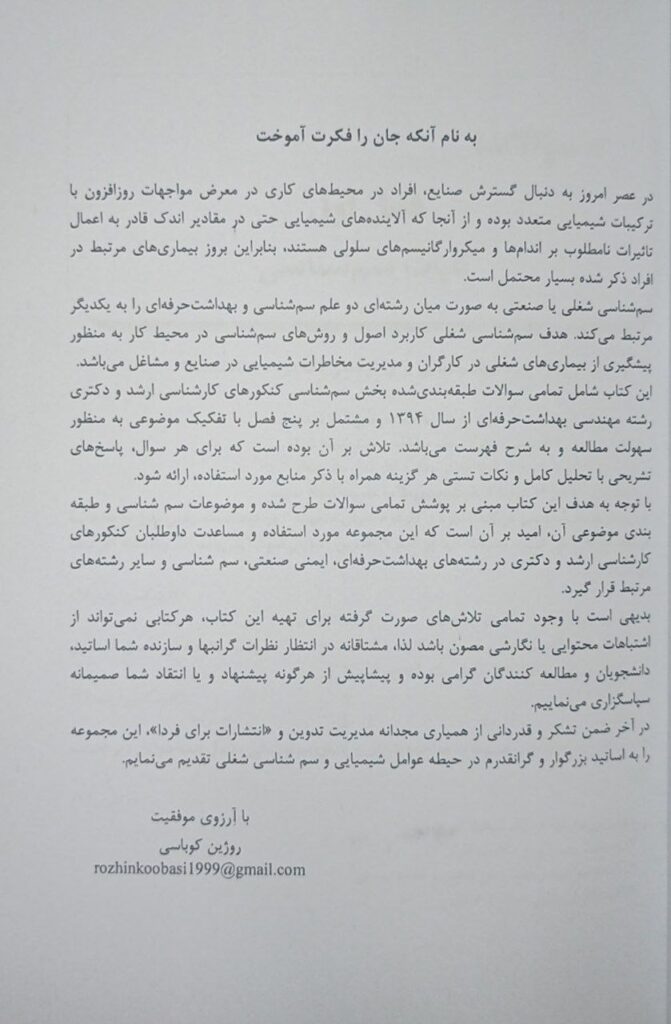 به نام آنکه جان را فکرت آموخت
در عصر امروز به دنبال گسترش صنایع، افراد در محیط‌های کاری در معرض مواجهات روزافزون با
ترکیبات شیمیایی متعدد بوده و از آنجا که آلاینده‌های شیمیایی حتی در مقادیر اندک قادر به اعمال
تاثیرات نامطلوب بر اندام‌ها و میکروارگانیسم‌های سلولی هستند، بنابراین بروز بیماری‌های مرتبط در
افراد ذکر شده بسیار محتمل است.
سم‌شناسی شغلی یا صنعتی به صورت میان رشته‌ای دو علم سم‌شناسی و بهداشت‌حرفه‌ای را به یکدیگر
مرتبط می‌کند. هدف سم‌شناسی شغلی کاربرد اصول و روش‌های سم‌شناسی در محیط کار به منظور
پیشگیری از بیماری‌های شغلی در کارگران و مدیریت مخاطرات شیمیایی در صنایع و مشاغل می‌باشد.
این کتاب شامل تمامی سوالات طبقه‌بندی‌شده بخش سم‌شناسی کنکورهای کارشناسی ارشد و دکتری
رشته مهندسی بهداشت‌حرفه‌ای از سال ۱۳۹۴ و مشتمل بر پنج فصل با تفکیک موضوعی به منظور
سهولت مطالعه و به شرح فهرست می‌باشد. تلاش بر آن بوده است که برای هر سوال، پاسخ‌های
تشریحی با تحلیل کامل و نکات تستی هر گزینه همراه با ذکر منابع مورد استفاده، ارائه شود.
با توجه به هدف این کتاب مبنی بر پوشش تمامی سوالات طرح شده و موضوعات سم شناسی و طبقه
بندی موضوعی آن، امید بر آن است که این مجموعه مورد استفاده و مساعدت داوطلبان کنکورهای
کارشناسی ارشد و دکتری در رشته‌های بهداشت‌حرفه‌ای، ایمنی صنعتی، سم شناسی و سایر رشته‌های
مرتبط قرار گیرد.
بدیهی است با وجود تمامی تلاش‌های صورت گرفته برای تهیه این کتاب، هرکتابی نمی‌تواند از
اشتباهات محتوایی یا نگارشی مصون باشد لذا، مشتاقانه در انتظار نظرات گرانبها و سازنده شما اساتید،
دانشجویان و مطالعه کنندگان گرامی بوده و پیشاپیش از هرگونه پیشنهاد و یا انتقاد شما صمیمانه
سپاسگزاری می‌نماییم.
در آخر ضمن تشکر و قدردانی از همیاری مجدانه مدیریت تدوین و «انتشارات برای فردا»، این مجموعه
را به اساتید بزرگوار و گرانقدرم در حیطه عوامل شیمیایی و سم شناسی شغلی تقدیم می‌نمایم.
با آرزوی موفقیت
روژین کوباسی
rozhinkoobasi1999@gmail.com